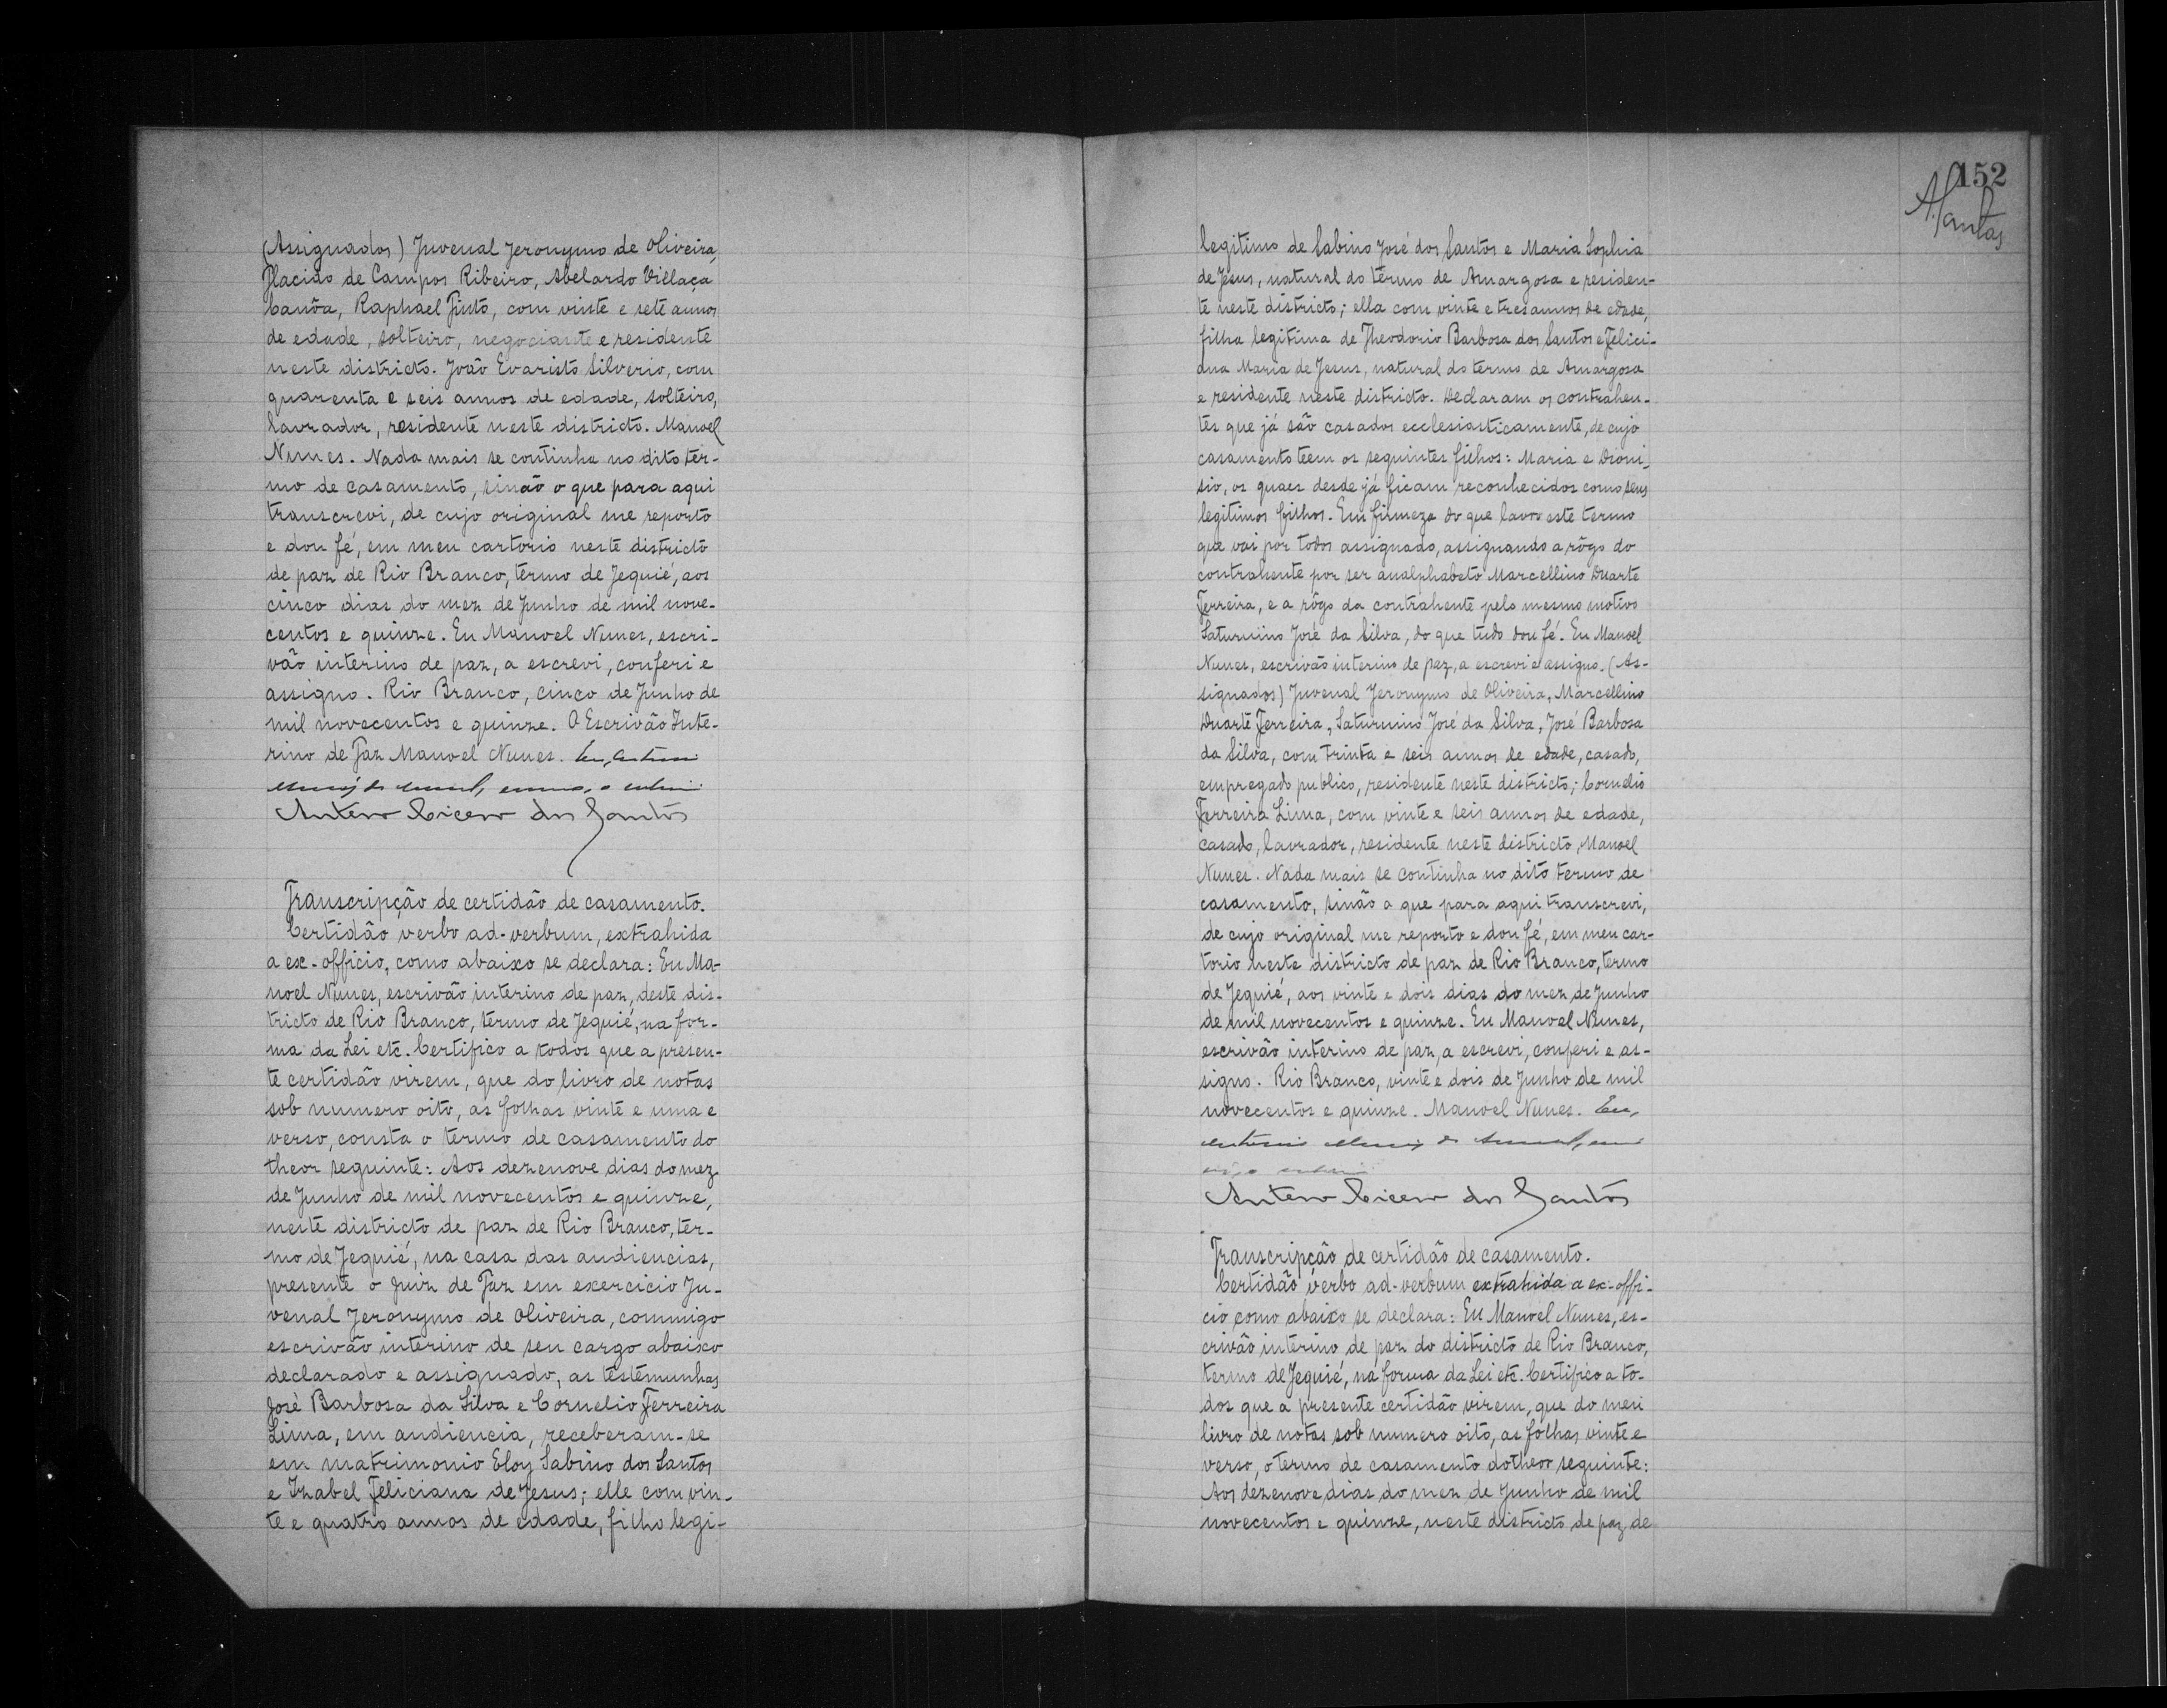 (Assignados) Juvenal Jeronymo de Oliveira,
Placido de Campos Ribeiro, Abelardo Villaça
Canôa, Raphael Pinto, com vinte e sete annos
de edade, solteiro, negociante e residente
neste districto. João Evaristo Silverio, com
quarenta e seis annos de edade, solteiro,
lavrador, residente neste districto. Manoel
Nunes. Nada mais se continha no dito ter-
mo de casamento, sinão o que para aqui
transcrevi, de cujo original me reporto
e dou fé, em meu cartorio neste districto
de paz de Rio Branco, termo de Jequié, aos
cinco dias do mez de Junho de mil nove-
centos e quinze. Eu Manoel Nunes, escri-
vão interino de paz, a escrevi, conferi e
assigno. Rio Branco, cinco de Junho de
mil novecentos e quinze. O Escrivão Inte-
rino de Paz Manoel Nunes. Eu, Antonio
Antero Cicero dos Santos
Transcripção de certidão de casamento.
Certidão verbo ad-verbum, extrahida
a ex-officio, como abaixo se declara: Eu Ma-
noel Nunes, escrivão interino de paz, deste dis-
tricto de Rio Branco, termo de Jequié, na for-
ma da Lei etc. Certifico a todos que a presen-
te certidão virem, que do livro de notas
sob numero oito, as folhas vinte e uma e
verso, consta o termo de casamento do
theor seguinte: Aos dezenove dias do mez
de Junho de mil novecentos e quinze,
neste districto de paz de Rio Branco, ter-
mo de Jequié, na casa das audiencias,
presente o Juiz de Paz em exercicio Ju-
venal Jeronymo de Oliveira, commigo
escrivão interino de seu cargo abaixo
declarado e assignado, as testemunhas
José Barbosa da Silva e Cornelio Ferreira
Lima, em audiencia, receberam-se
em matrimonio Eloy Sabino dos Santos
e Izabel Feliciana de Jesus; elle com vin-
te e quatro annos de edade, filho legi-
152
ASantos
legitimo de Sabino José dos Santos e Maria Sophia
de Jesus, natural do termo de Amargosa e residen-
te neste districto; ella com vinte e tres annos de edade,
filha legitima de Theodorio Barbosa dos Santos e Felici-
ana Maria de Jesus, natural do termo de Amargosa
e residente neste districto. Declaram os contrahen-
tes que já são casados ecclesiasticamente, de cujo
casamento teem os seguintes filhos: Maria e Dioni-
sio, os quaes desde já ficam reconhecidos como seus
legitimos filhos. Em firmeza do que lavro este termo
que vai por todos assignado, assignando a rôgo do
contrahente por ser analphabeto Marcellino Duarte
Ferreira, e a rôgo da contrahente pelo mesmo motivo
Saturnino José da Silva, do que tudo dou fé. Eu Manoel
Nunes, escrivão interino de paz, a escrevi e assigno. (As-
signados) Juvenal Jeronymo de Oliveira, Marcellino
Duarte Ferreira, Saturnino José da Silva, José Barbosa
da Silva, com trinta e seis annos de edade, casado,
empregado publico, residente neste districto; Cornelio
Ferreira Lima, com vinte e seis annos de edade,
casado, lavrador, residente neste districto, Manoel
Nunes. Nada mais se continha no dito termo de
casamento, sinão o que para aqui transcrevi,
de cujo original me reporto e dou fé, em meu car-
torio neste districto de paz de Rio Branco, termo
de Jequié, aos vinte e dois dias do mez de Junho
de mil novecentos e quinze. Eu Manoel Nunes,
escrivão interino de paz, a escrevi, conferi e as-
signo. Rio Branco, vinte e dois de Junho de mil
novecentos e quinze. Manoel Nunes. Eu,
Antonio
Antero Cicero dos Santos
Transcripção de certidão de casamento.
Certidão verbo ad-verbum extrahida a ex-offi-
cio como abaixo se declara: Eu Manoel Nunes, es-
crivão interino de paz do districto de Rio Branco,
termo de Jequié, na forma da Lei etc. Certifico a to-
dos que a presente certidão virem, que do meu
livro de notas sob numero oito, as folhas vinte e
verso, o termo de casamento do theor seguinte:
Aos dezenove dias do mez de Junho de mil
novecentos e quinze, neste districto de paz de